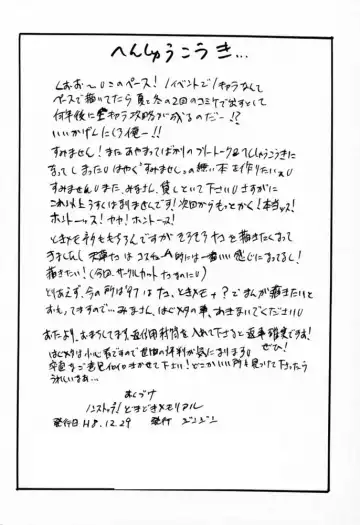 へんしゅうこうき…
くおお〜このペース! 1イベントで1キャラなんて
ペースで描いてたら夏と冬の2回のコミケで出すとして
何年後に全キャラ攻略が成るのだー!?
いいかげんにしろ俺ー!!
すみません!またあやまってばかりのフリートーク&へんしゅうこうきに
なってしまった はやく「すみません」の無い本を作りたい
すみません また、みなさん、貸しといて下さい さすがに
これ以上うすくはなりませんです! 次回からもっとかく! 本当ッス!
ホントーッス!
ときメモネタももちろんですがそろそろ を描きたくなって
きましたし 的には一番いい感じになってるし!
描きたい!(今回、サークルカット なのに)
とりあえず、今の所は'97は ときメモ+?でまんが描きたいと
おもってますので…みなさん、 の事、おまちいてください
おたより、おまちしてます。返信用封筒を入れて下さると返事確実ですよ!
ぜひ!
は小心者ですので世間の評判が気になります
卒直なご意見 きかせて下さい! どこかいい所も見つけて下さったら
うれしいなぁ…
おくづけ
ノンストップ! どきどきメモリアル
発行日 H8.12.29 発行